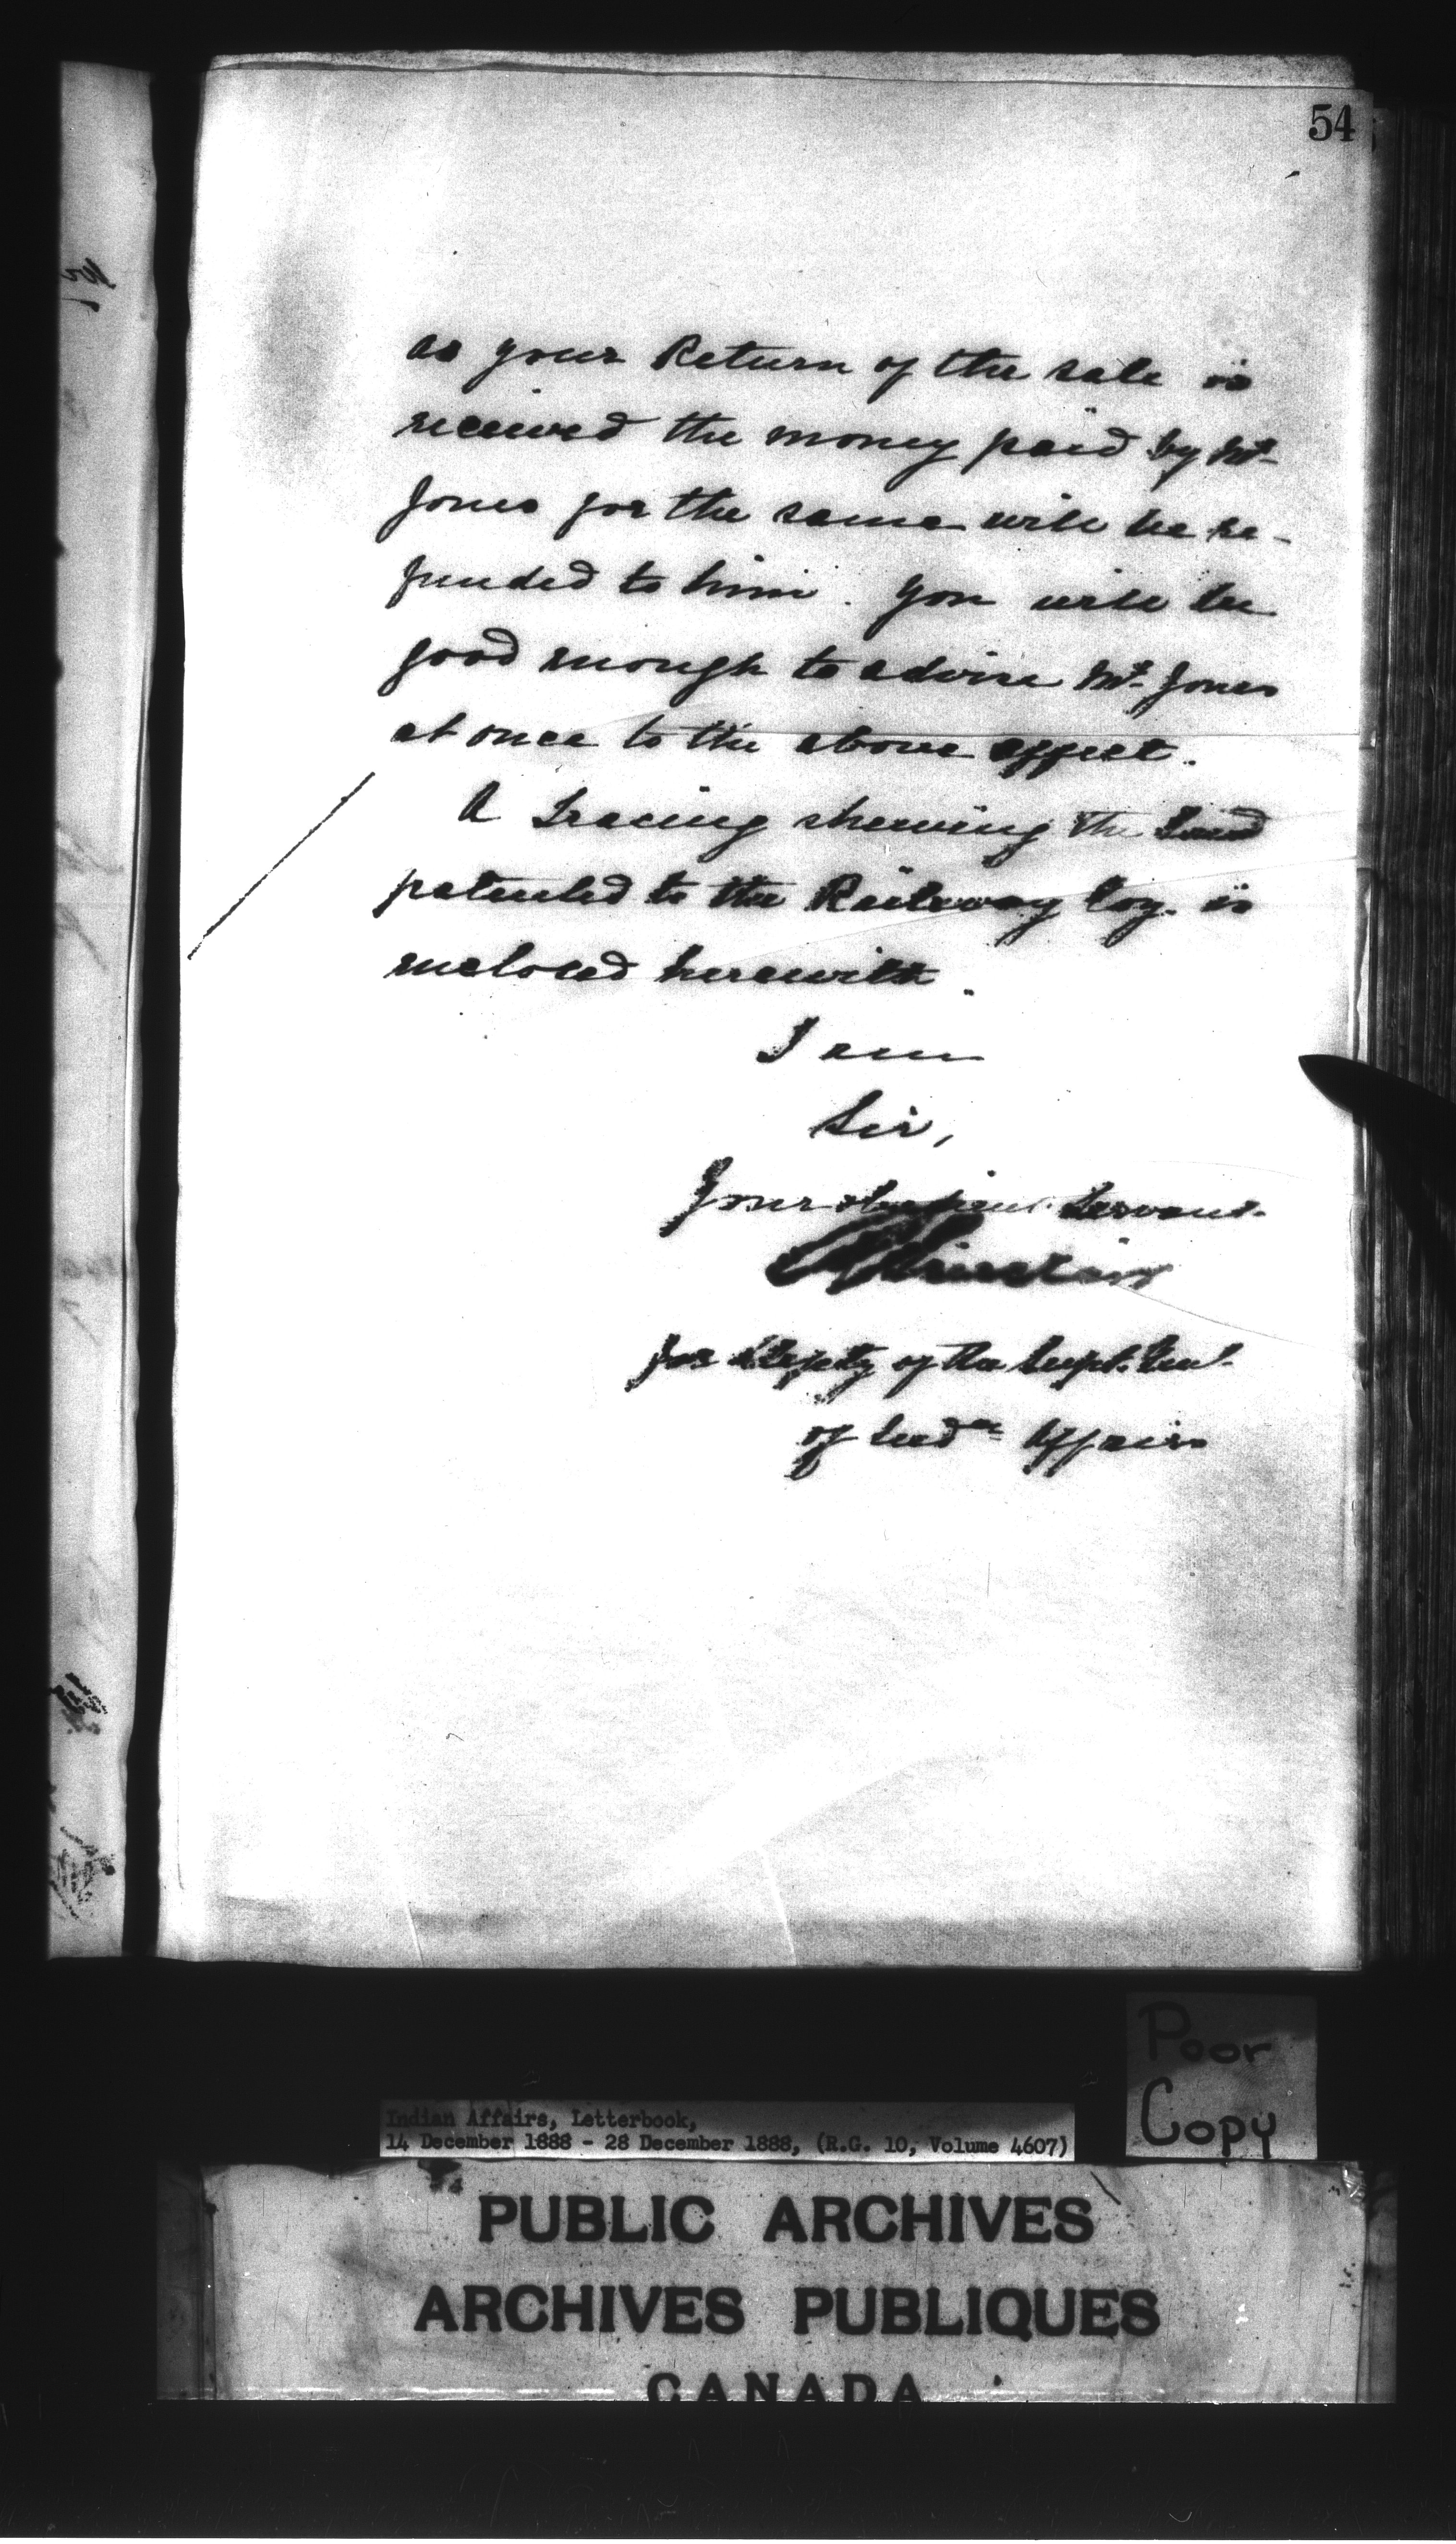 54
as your Return of the sale is
received the money paid by Mr.
Jones for the same will be re-
funded to him. You will be
good enough to advise Mr. Jones
at once to the above effect.
A tracing shewing the land
patented to the Railway Coy. is
enclosed herewith.
I am
Sir,
Your obedient Servant
for Deputy of the Supt. Genl.
of Indn Affairs
Poor
Copy
Indian Affairs, Letterbook,
14 December 1888 - 28 December 1888, (R.G. 10, Volume 4607)
PUBLIC ARCHIVES
ARCHIVES PUBLIQUES
CANADA